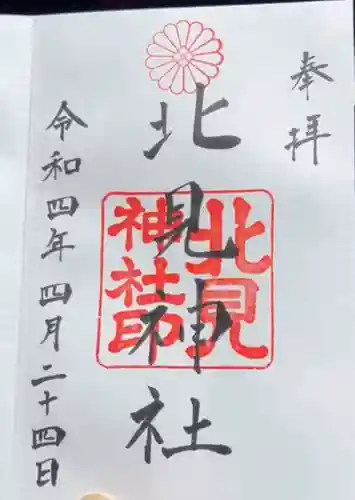 奉拝
北見神社
北見
神社印
令和四年四月二十四日